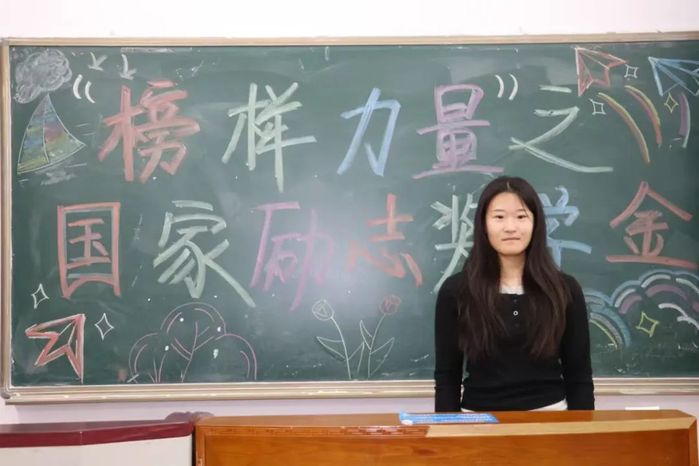 榜样力量之
国家励志奖学金